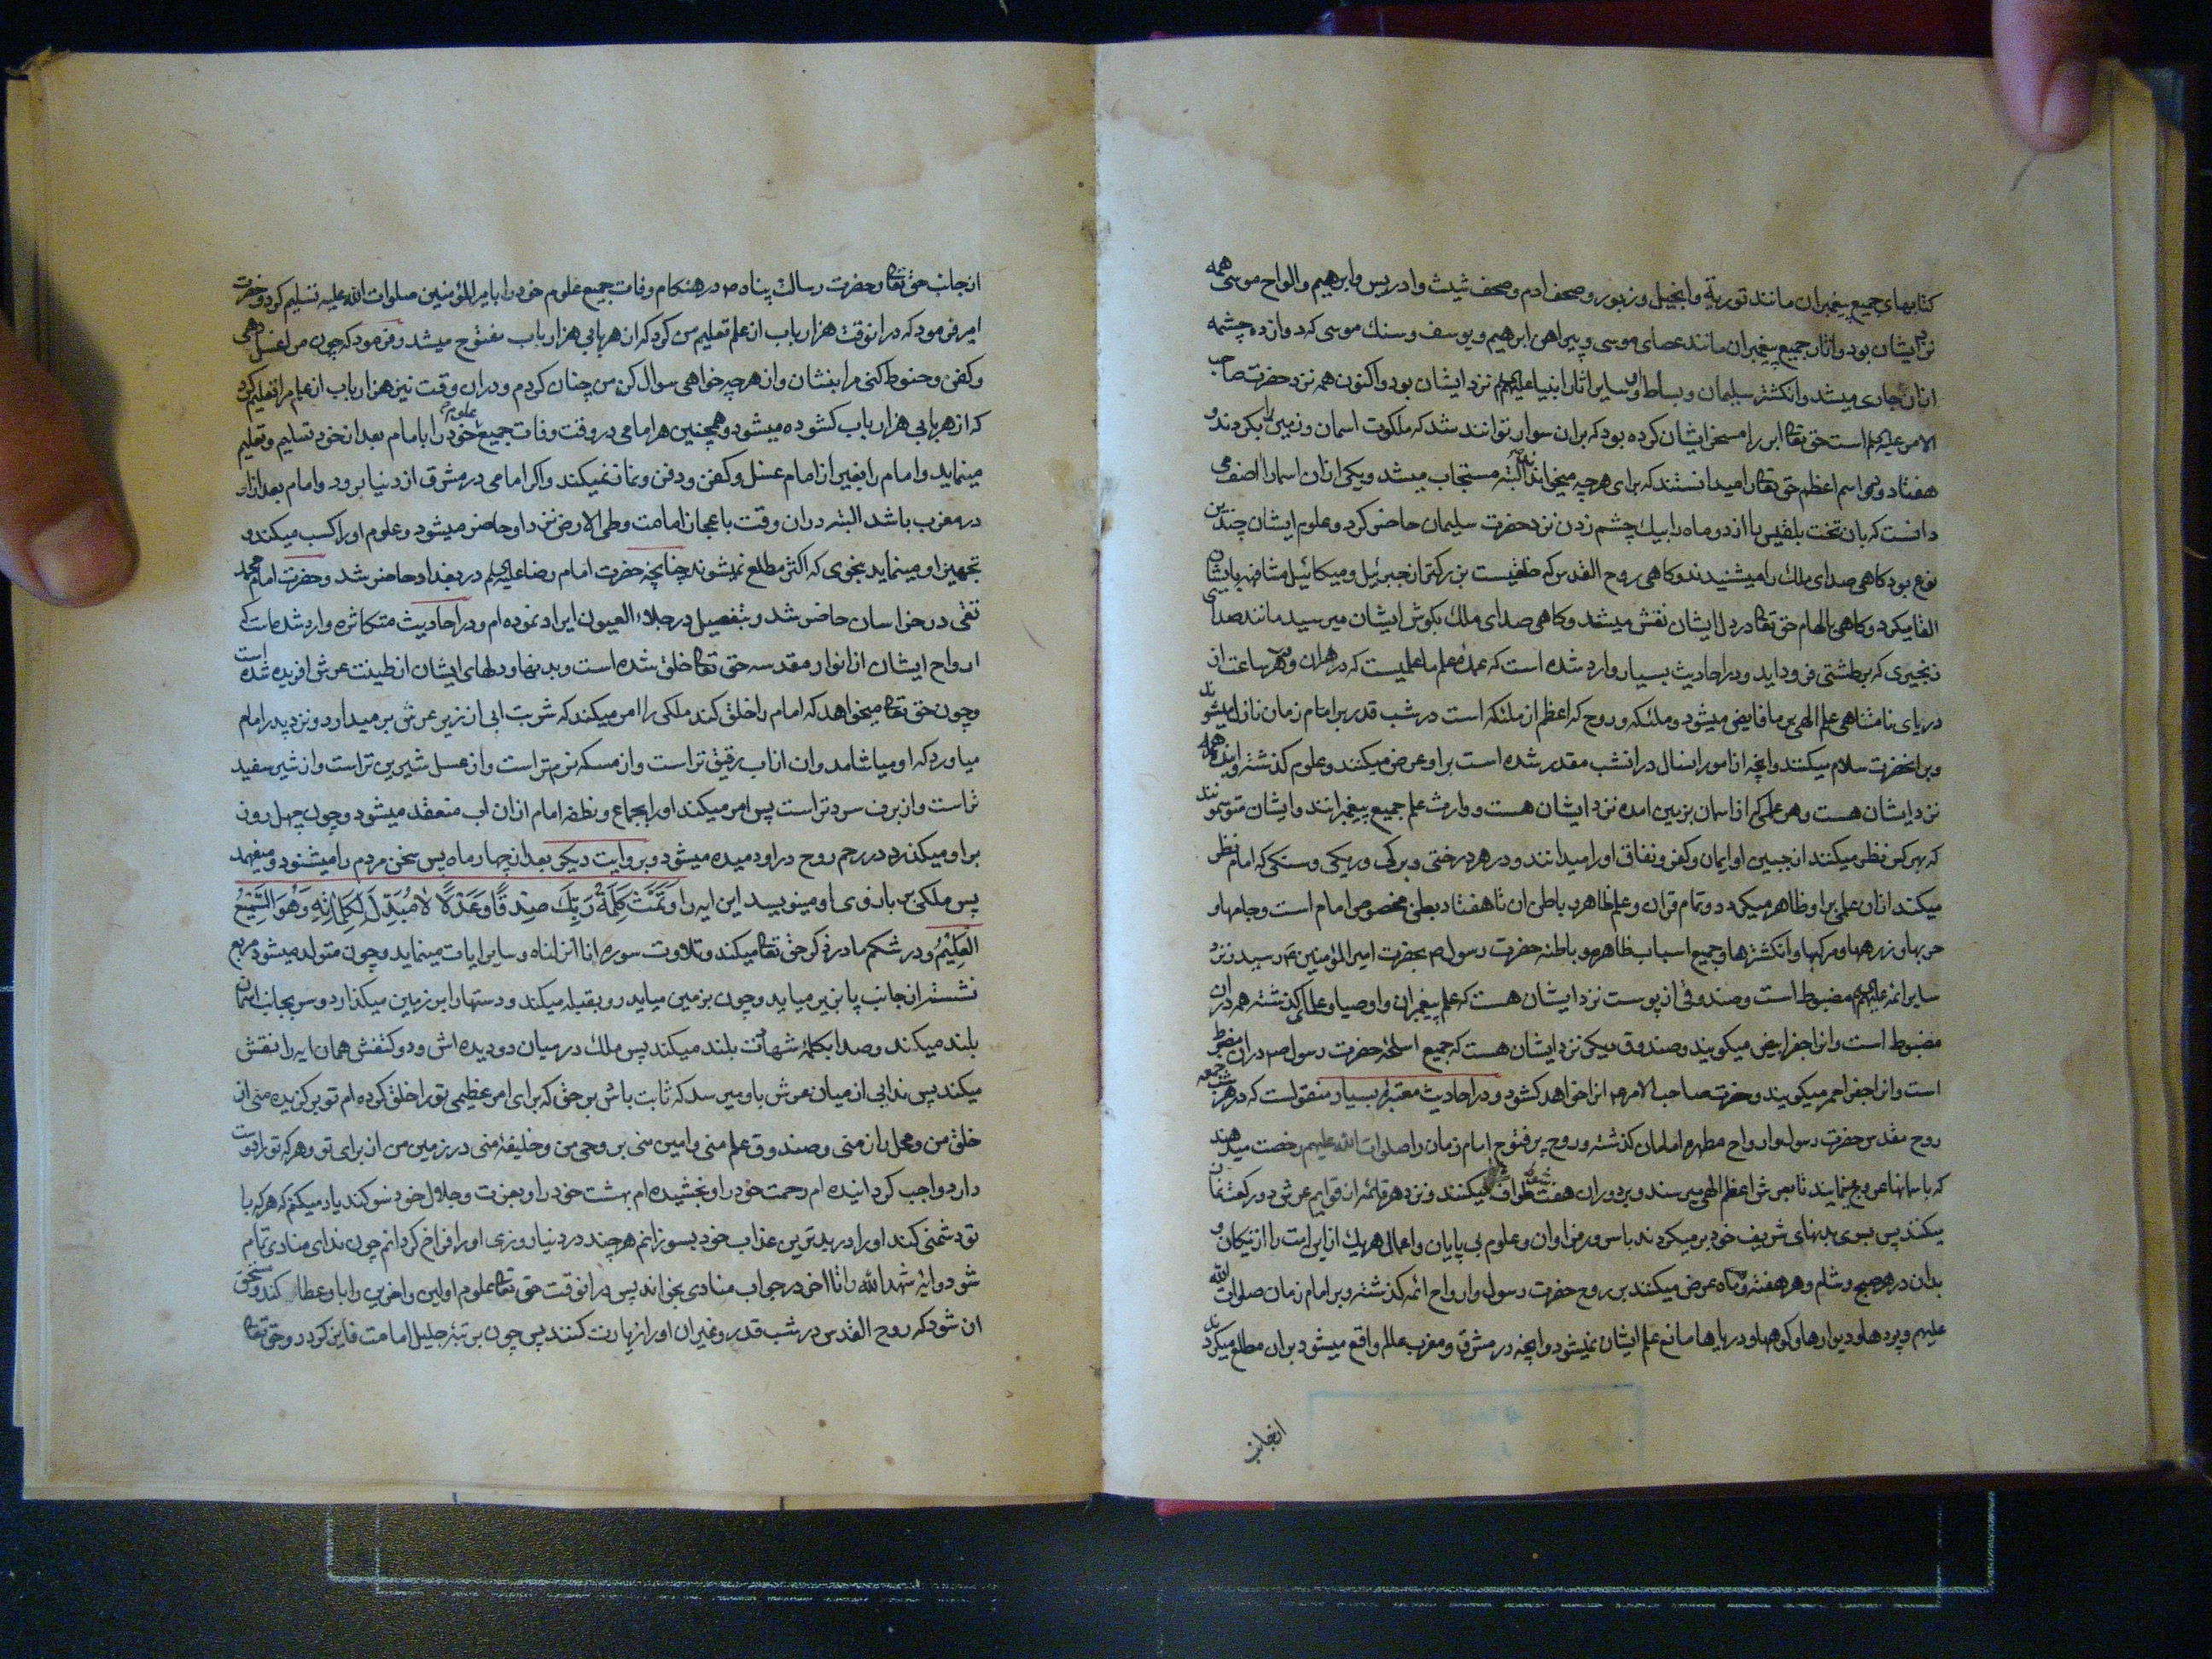 کتابهای جمیع پیغمبران مانند توریة و انجیل و زبور و صحف ادم و صحف شیث و ادریس و ابرهیم و الواح موسی همه
نزد ایشان بود و اثار جمیع پیغمبران مانند عصای موسی و پیراهن ابرهیم و یوسف و سنك موسی که دوازده چشمه
ازان جاری میشد و انکشتر سلیمان و بساط او و سایر اثار انبیا علیهم نزد ایشان بود و اکنون همه نزد حضرت صاحب
الامر علیه است حق تعا ابر را مسخر ایشان کرده بود که بران سوار توانند شد که ملکوت اسمان و زمین را بکردند و
هفتاد و دو اسم اعظم حق تعا را میدانستند که برای هرچه میخوانند البته مستجاب میشد و یکی ازان اسما را اصف می
دانست که بان تخت بلقیس را از دو ماه راه بیك چشم زدن نزد حضرت سلیمان حاضر کرد و علوم ایشان چندین
نوع بود کاهی صدای ملك را میشنیدند و کاهی روح القدس که خلقیست بزرکتر از جبرئیل و میکائیل مشافهه بایشان
القا میکرد و کاهی بالهام حق تعا در دل ایشان نقش میشد و کاهی صدای ملك بکوش ایشان میرسید مانند صدای
زنجیری که بر طشتی فرود اید و در احادیث بسیار وارد شده است که عمده علم ما علمیست که در هر ان و هر ساعت از
دریای نامتناهی علم الهی بر ما فایض میشود و ملئکه و روح که اعظم از ملئکه است در شب قدر بر امام زمان نازل میشوند
و بر انحضرت سلام میکنند و انچه از امور انسال در انشب مقدر شده است بر او عرض میکنند و علوم کذشته و اینده همه
نزد ایشان هست و هر علمی که از اسمان بزمین امده نزد ایشان هست و وارث علم جمیع پیغمبرانند و ایشان متوسمونند
که بهر کس نظر میکنند از جبین او ایمان و کفر و نفاق او را میدانند و در هر درختی و برکی و ریکی و سنکی که امام نظر
میکند ازان علمی بر او ظاهر میکردد و تمام قران و علم ظاهر و باطن ان تا هفتاد بطن مخصوص امام است و جامها و
حربها و زرهها و مرکبها و انکشترها و جمیع اسباب ظاهره و باطنه حضرت رسول ص بحضرت امیر المؤمنین ع رسید و نزد
سایر ائمه علیهم مضبوط است و صندوقی از پوست نزد ایشان هست که علم پیغمبران و اوصیا و علمای کذشته همه دران
مضبوط است و انرا جفر ابیض میکویند و صندوق دیکر نزد ایشان هست که جمیع اسلحه حضرت رسول ص دران مضبوط
است و انرا جفر احمر میکویند و حضرت صاحب الامر ع انرا خواهد کشود و در احادیث معتبره بسیار منقولست که در هر شب جمعه
روح مقدس حضرت رسول و ارواح مطهره امامان کذشته و روح پر فتوح امام زمان را صلوات الله علیهم رخصت میدهند
که باسمانها عروج مینمایند تا بعرش اعظم الهی میرسند و بر دوران هفت شوط طواف میکنند و نزد هر قائمه از قوایم عرش دو رکعت نماز
میکنند پس بسوی بدنهای شریف خود بر میکردند با سرور فراوان و علوم بی پایان و اعمال هریك از این امت را از نیکان و
بدان در هر صبح و شام و هر هفته و ماه عرض میکنند بر روح حضرت رسول و ارواح ائمه کذشته و بر امام زمان صلوات الله
علیهم و پردها و دیوارها و کوهها و دریاها مانع علم ایشان نمیشود و انچه در مشرق و مغرب عالم واقع میشود بران مطلع میکردند
انجانب
ازجانب حق تعا و حضرت رسالت پناه ص در هنکام وفات جمیع علوم خود را بامیر المؤمنین صلوات الله علیه تسلیم کرد و حضرت
امیر فرمود که درانوقت هزار باب از علم تعلیم من کرد که از هر بابی هزار باب مفتوح میشد و فرمود که چون مرا غسل دهی
و کفن و حنوط کنی مرا بنشان و از هرچه خواهی سوال کن من چنان کردم و دران وقت نیز هزار باب از علم مرا تعلیم کرد
که از هر بابی هزار باب کشوده میشود و همچنین هر امامی در وقت وفات جمیع علوم خود را بامام بعد از خود تسلیم و تعلیم
مینماید و امام را بغیر از امام غسل و کفن و دفن و نماز نمیکند و اکر امامی در مشرق از دنیا برود و امام بعد ازان
در مغرب باشد البته دران وقت باعجاز امامت و طی الارض نزد او حاضر میشود و علوم او را کسب میکند و
تجهیز او مینماید بنحوی که اکثر مطلع نمیشوند چنانچه حضرت امام رضا علیه در بغداد حاضر شد و حضرت امام محمد
تقی در خراسان حاضر شد و بتفصیل در جلاء العیون ایراد نموده ام و در احادیث متکاثره وارد شده است که
ارواح ایشان از انوار مقدسه حق تعا خلق شده است و بدنها و دلهای ایشان از طینت عرش افریده شده است
و چون حق تعا میخواهد که امام را خلق کند ملکی را امر میکند که شربت ابی از زیر عرش بر میدارد و نزد پدر امام
میاورد که او میاشامد و ان از اب رقیق تر است و از مسکه نرم تر است و از عسل شیرین تر است و از شیر سفید
تر است و از برف سرد تر است پس امر میکند او را بجماع و نطفه امام ازان اب منعقد میشود و چون چهل روز
بر او میکذرد در رحم روح در او دمیده میشود و بروایت دیکر بعد از چهار ماه پس سخن مردم را میشنود و میفهمد
پس ملکی بر بازوی او مینویسد این ایه را وَتَمَّتْ كَلِمَةُ رَبِّكَ صِدْقًا وَعَدْلًا لَا مُبَدِّلَ لِكَلِمَاتِهِ وَهُوَ السَّمِيعُ
الْعَلِيمُ و در شکم مادر ذکر حق تعا میکند و تلاوت سوره انا انزلناه و سایر ایات مینماید و چون متولد میشود مربع
نشسته از جانب پا بزیر میاید و چون بزمین میاید رو بقبله میکند و دستها را بر زمین میکذارد و سر بجانب اسمان
بلند میکند و صدا بکلمه شهادت بلند میکند پس ملك در میان دو دیده اش و دو کتفش همان ایه را نقش
میکند پس ندایی از میان عرش باو میرسد که ثابت باش بر حق که برای امر عظیمی تو را خلق کرده ام تو برکزیده منی از
خلق من و محل راز منی و صندوق علم منی و امین منی بر وحی من و خلیفه منی در زمین من از برای تو و هر که تو را دوست
دارد واجب کردانیده ام رحمت خود را و بخشیده ام بهشت خود را و بعزت و جلال خود سوکند یاد میکنم که هر که با
تو دشمنی کند او را در بدترین عذاب خود بسوزانم هر چند در دنیا روزی او را فراخ کردانم چون ندای منادی تمام
شود و ایه شهد الله را تا اخر در جواب منادی بخواند پس درانوقت حق تعا علوم اولین و اخرین را باو عطا کند و مستحق
ان شود که روح القدس در شب قدر و غیر ان او را زیارت کنند پس چون برتبه جلیل امامت فایز کردد و حق تعا